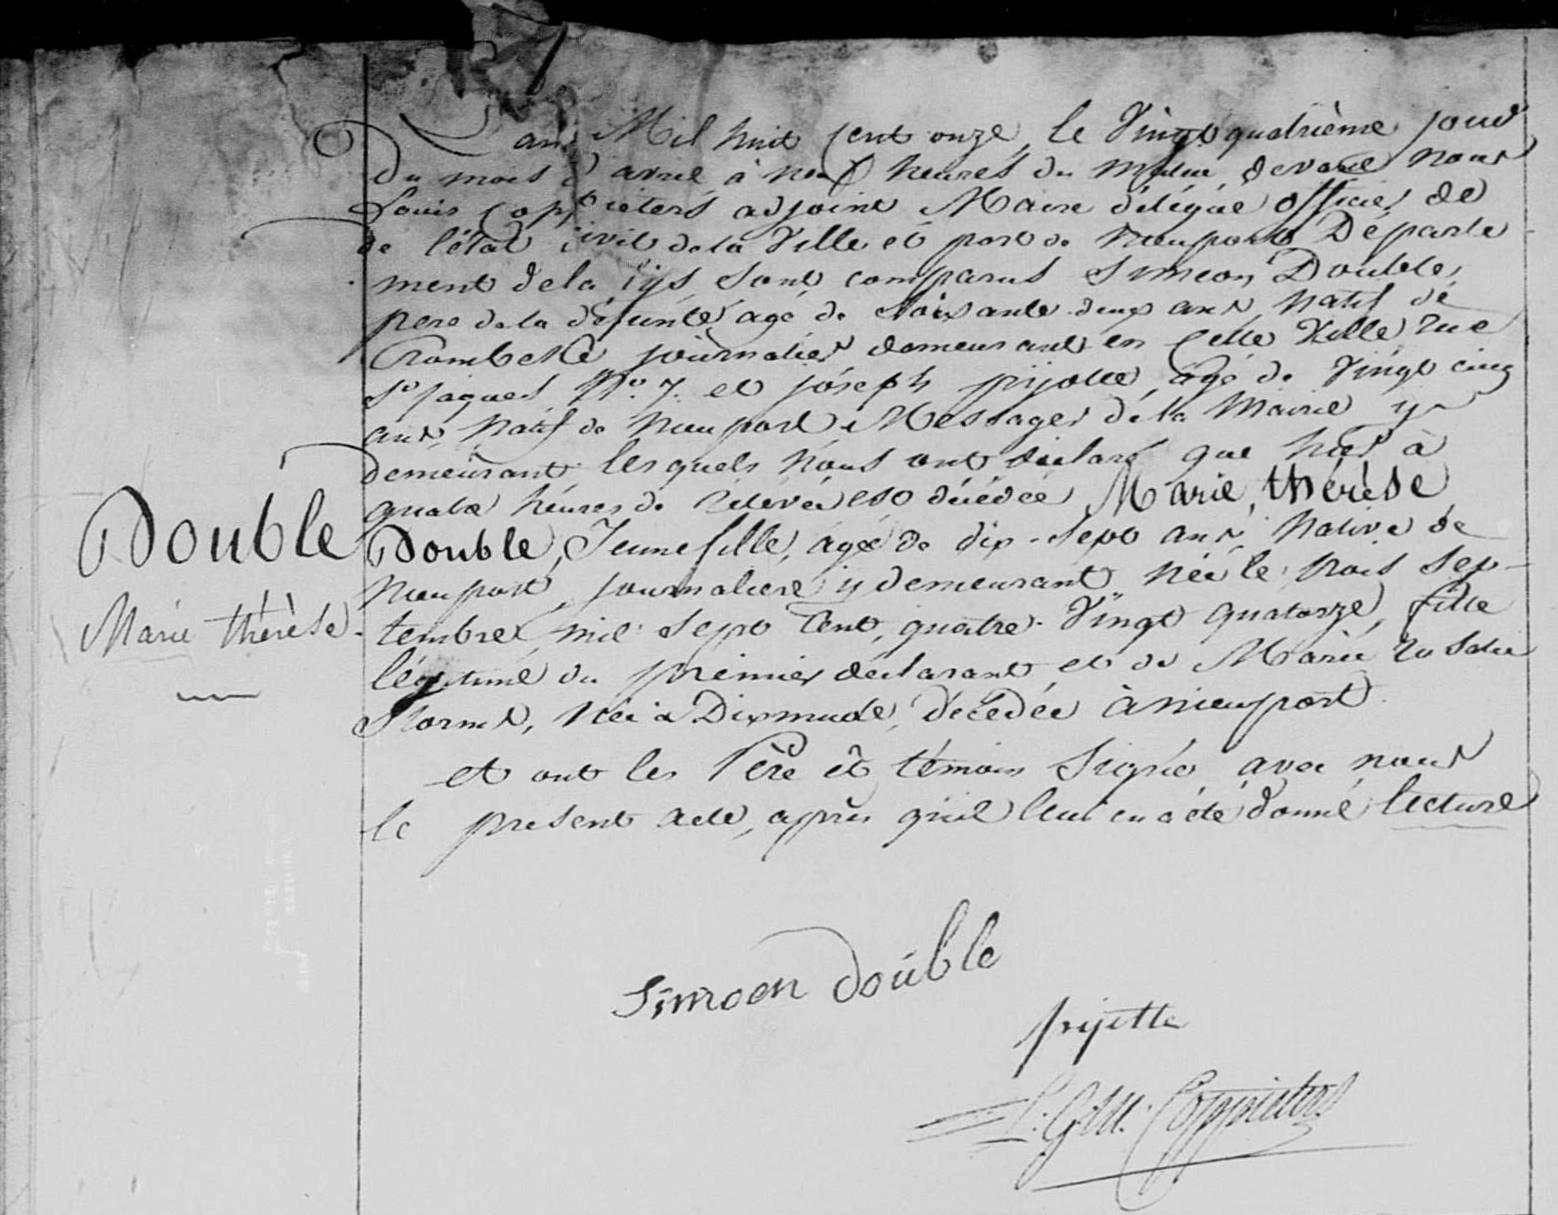 L'an Mil huit cent onze, le Vingt quatrième jour
Du mois d'avril à neuf heures du matin, devant nous
Louis Coppieters adjoint Maire délégué officier de
de l'état civil de la Ville et port de nieuport Départe
ment de la Lys sont comparus Simeon Double,
pere de la défunte agé de soixante deux ans, natif de
Crombeke journalier demeurant en cette Ville rue
St. jaques No. 7. et joseph pijette, âgé de Vingt cinq
ans, natif de nieuport Messager de la Mairie y
demeurant, lesquels nous ont déclaré que hier à
quatre heures de relevée est décédée Marie, thérèse
Double, Jeune fille, agée de dix-sept ans, native de
nieuport, journaliere y demeurant née le trois sep-
tembre mil sept cent, quatre-Vingt quatorze, fille
légitime du premier déclarant et de Marie rosalie
Storm, née à Dixmude, décédée à nieuport.
et ont les Père et témoin signé avec nous
le present acte, après qu'il leur en a été donné lecture
Double
Marie thérèse.
Simoen double
pijette
L: G: M: Coppieters